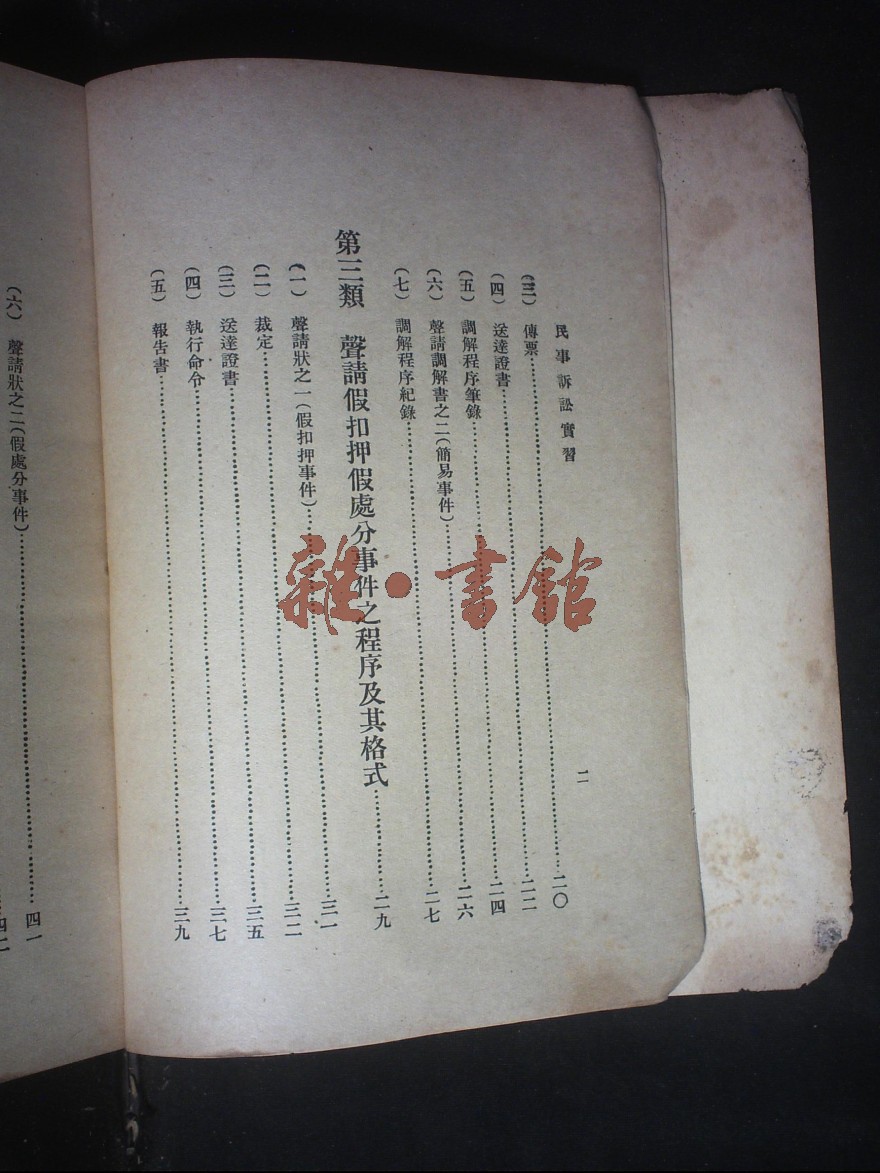 民事訴訟實習
二
(三) 傳票……二〇
(四) 送達證書……二二
(五) 調解程序筆錄……二四
(六) 聲請調解書之二(簡易事件)……二六
(七) 調解程序紀錄……二七
第三類 聲請假扣押假處分事件之程序及其格式……二九
(一) 聲請狀之一(假扣押事件)……三一
(二) 裁定……三二
(三) 送達證書……三五
(四) 執行命令……三七
(五) 報告書……三九
(六) 聲請狀之二(假處分事件)……四一
四二
雜·書館